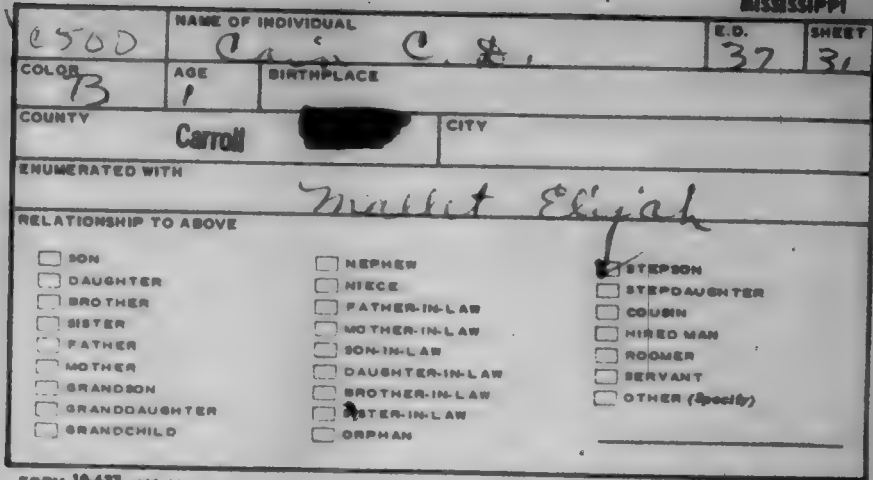 MISSISSIPPI
C500
NAME OF INDIVIDUAL
C. E.
E.D.
37
SHEET
31
COLOR
B
AGE
1
BIRTHPLACE
COUNTY
Carroll
CITY
ENUMERATED WITH
Elijah
RELATIONSHIP TO ABOVE
SON
DAUGHTER
BROTHER
SISTER
FATHER
MOTHER
GRANDSON
GRANDDAUGHTER
GRANDCHILD
NEPHEW
NIECE
FATHER-IN-LAW
MOTHER-IN-LAW
SON-IN-LAW
DAUGHTER-IN-LAW
BROTHER-IN-LAW
SISTER-IN-LAW
ORPHAN
STEPSON
STEPDAUGHTER
COUSIN
HIRED MAN
ROOMER
SERVANT
OTHER (Specify)